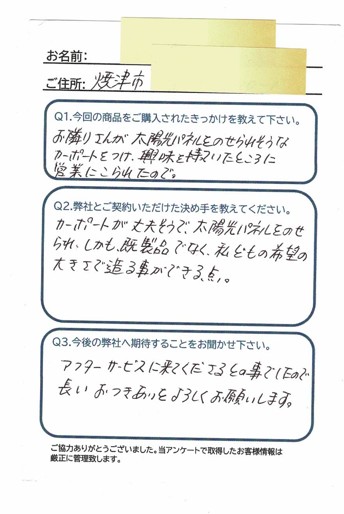 お名前:
ご住所: 焼津市
Q1.今回の商品をご購入されたきっかけを教えて下さい。
お隣りさんが太陽光パネルをのせられそうな
カーポートをつけ、興味を持っていたところに
営業にこられたので。
Q2.弊社とご契約いただけた決め手を教えてください。
カーポートが丈夫そうで、太陽光パネルをのせ
られ、しかも、既製品でなく、私どもの希望の
大きさで造る事ができる点。
Q3.今後の弊社へ期待することをお聞かせ下さい。
アフターサービスに来てくださるとの事でしたので
長いおつきあいをよろしくお願いします。
ご協力ありがとうございました。当アンケートで取得したお客様情報は
厳正に管理致します。